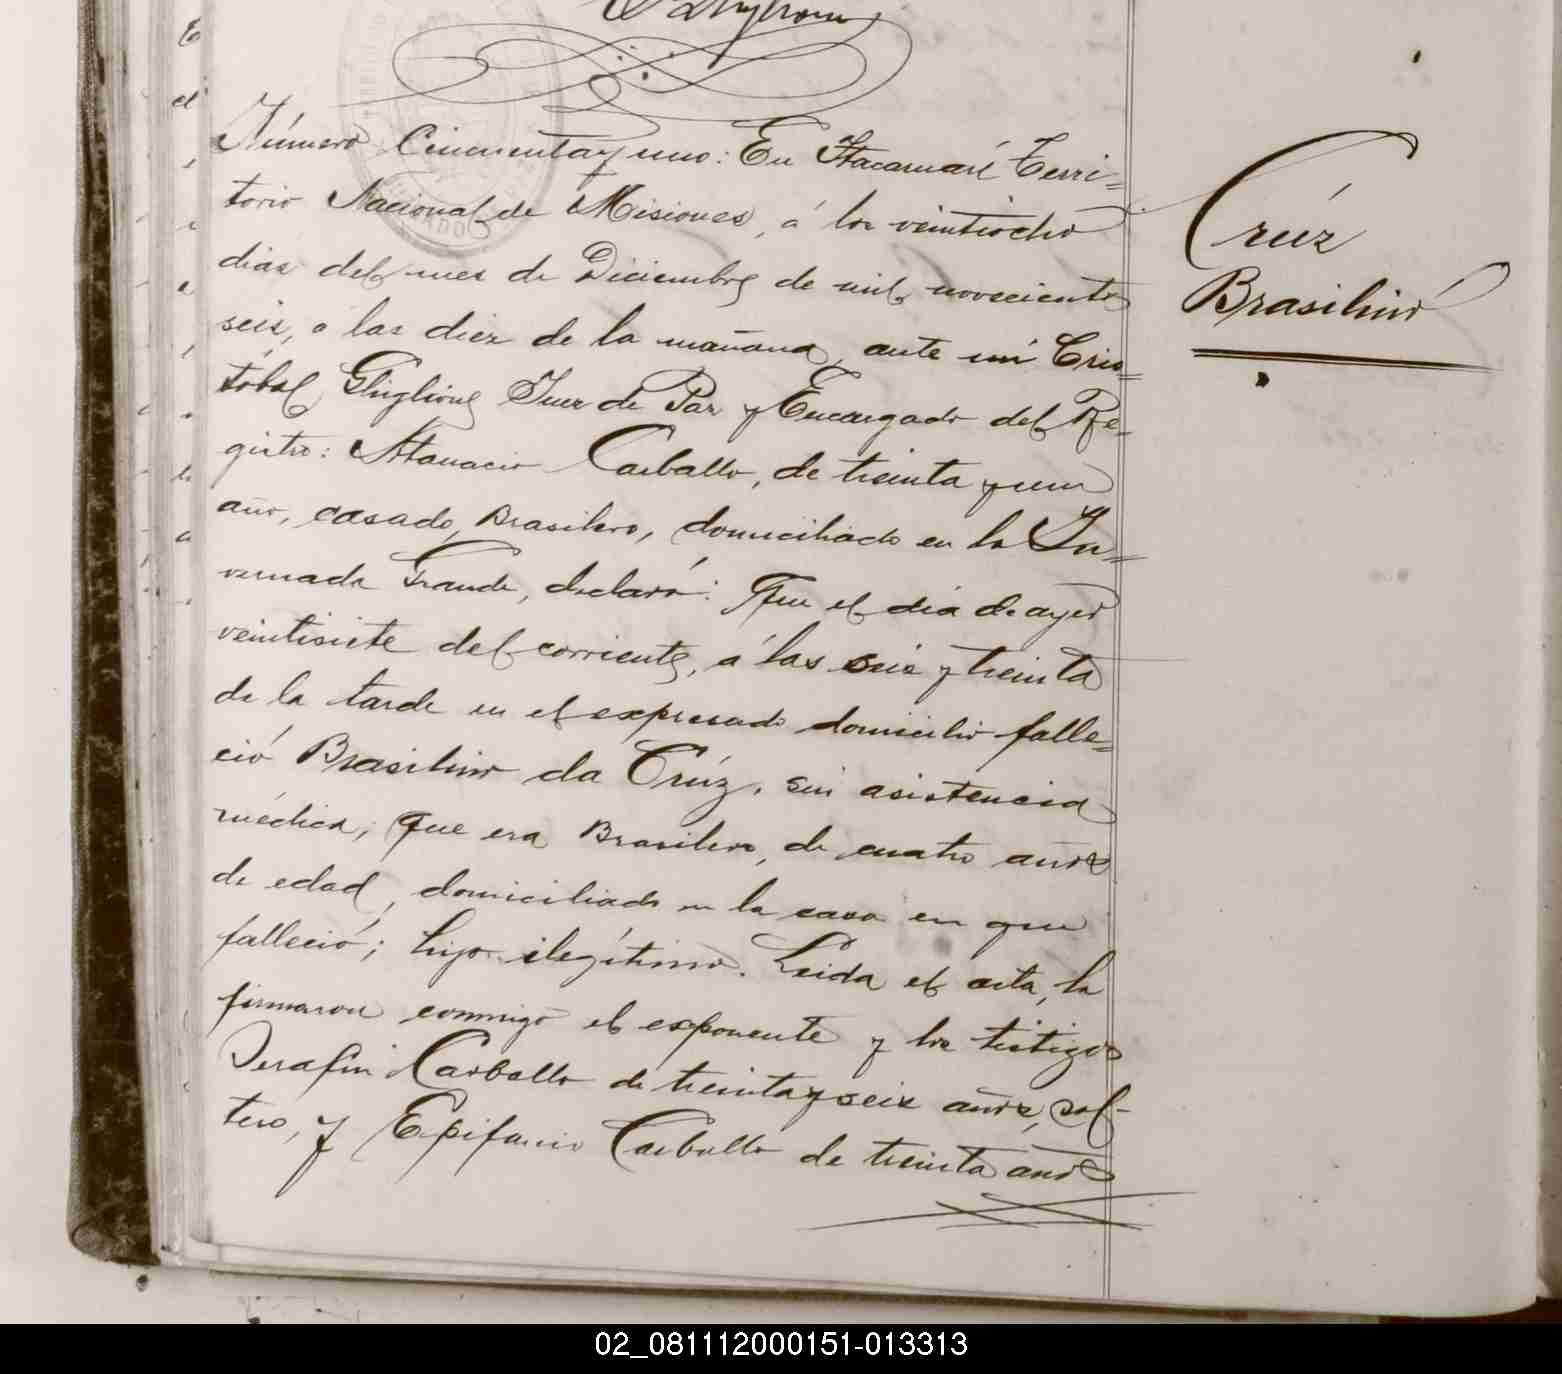 Número Cincuenta y uno: En Itacaruaré Terri=
torio Nacional de Misiones, á los veintiocho
dias del mes de Diciembre de mil novecientos
seis, a las diez de la mañana, ante mi Cris=
tóbal Ghiglione Juez de Paz y Encargado del Re=
gistro: Atanacio Carballo, de treinta y un
año, casado, Brasilero, domiciliado en la In=
vernada Grande, declaró: Que el dia de ayer
veintisiete del corriente, á las seis y treinta
de la tarde en el expresado domicilio falle=
ció Brasilino da Crúz, sin asistencia
médica; que era Brasilero, de cuatro años
de edad, domiciliado en la casa en que
falleció; hijo ilegítimo. Leida el acta, la
firmaron conmigo el exponente y los testigos
Serafin Carballo de treinta y seis años, sol-
tero, y Epifanio Carballo de treinta años
Crúz
Brasilino
02_081112000151-013313